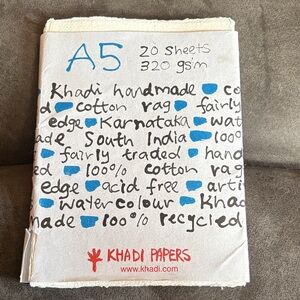 A5 20 sheets
320 gsm
Khadi handmade co
d cotton rag fairly
edge Karnataka wat
ade South India 100%
fairly traded hand
d 100% cotton rag
edge acid free arti
watercolour Khad
made 100% recycled
KHADI PAPERS
www.khadi.com